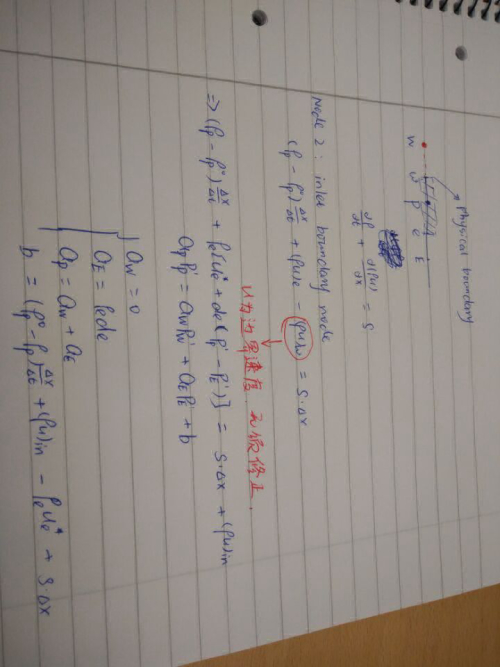 physical boundary
W w P e E
∂ρ/∂t + ∂(ρu)/∂x = S
Node 2 : inlet boundary node
(ρp - ρp°) Δx/Δt + (ρu)e - (ρu)w = S·Δx
U为边界速度 无须修正.
⇒ (ρp - ρp°) Δx/Δt + ρe[ue* + de(Pp' - PE')] = S·Δx + (ρu)in
apPp' = awPw' + aEPE' + b
aw = 0
aE = ρede
ap = aw + aE
b = (ρp° - ρp) Δx/Δt + (ρu)in - ρeue* + S·Δx